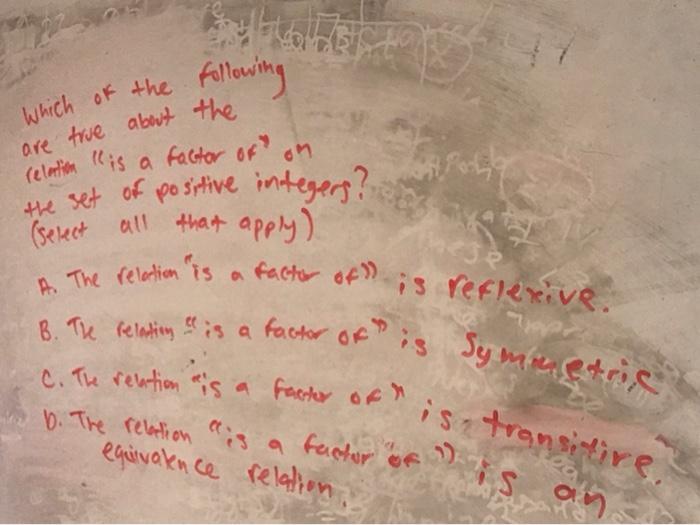 Which of the following
are true about the
relation "is a factor of" on
the set of positive integers?
(Select all that apply)
A. The relation "is a factor of" is reflexive.
B. The relation "is a factor of" is symmetric
C. The relation "is a factor of" is transitive.
D. The relation "is a factor of" is an
equivalence relation.